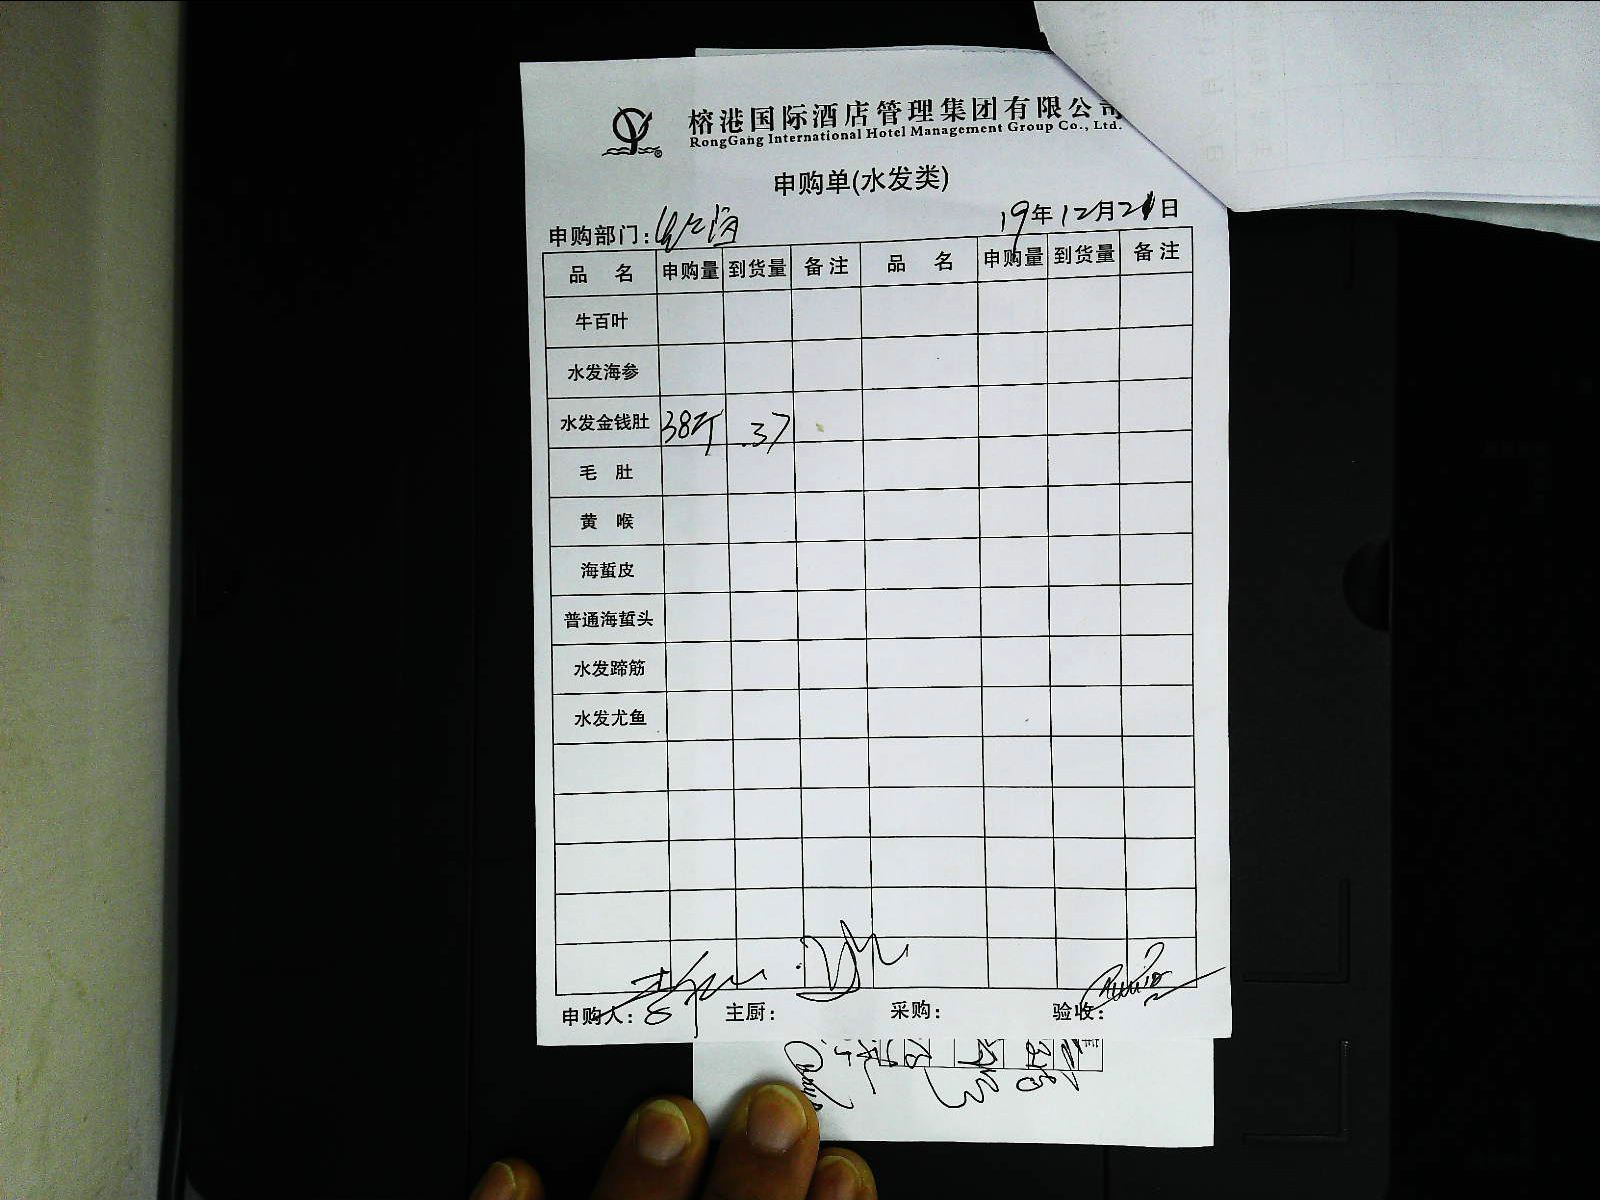 榕港国际酒店管理集团有限公司
RongGang International Hotel Management Group Co., Ltd.
申购单(水发类)
申购部门: 19年12月21日
品 名 申购量 到货量 备注 品 名 申购量 到货量 备注
牛百叶
水发海参
水发金钱肚 38斤 37
毛 肚
黄 喉
海蜇皮
普通海蜇头
水发蹄筋
水发尤鱼
申购人: 主厨: 采购: 验收: